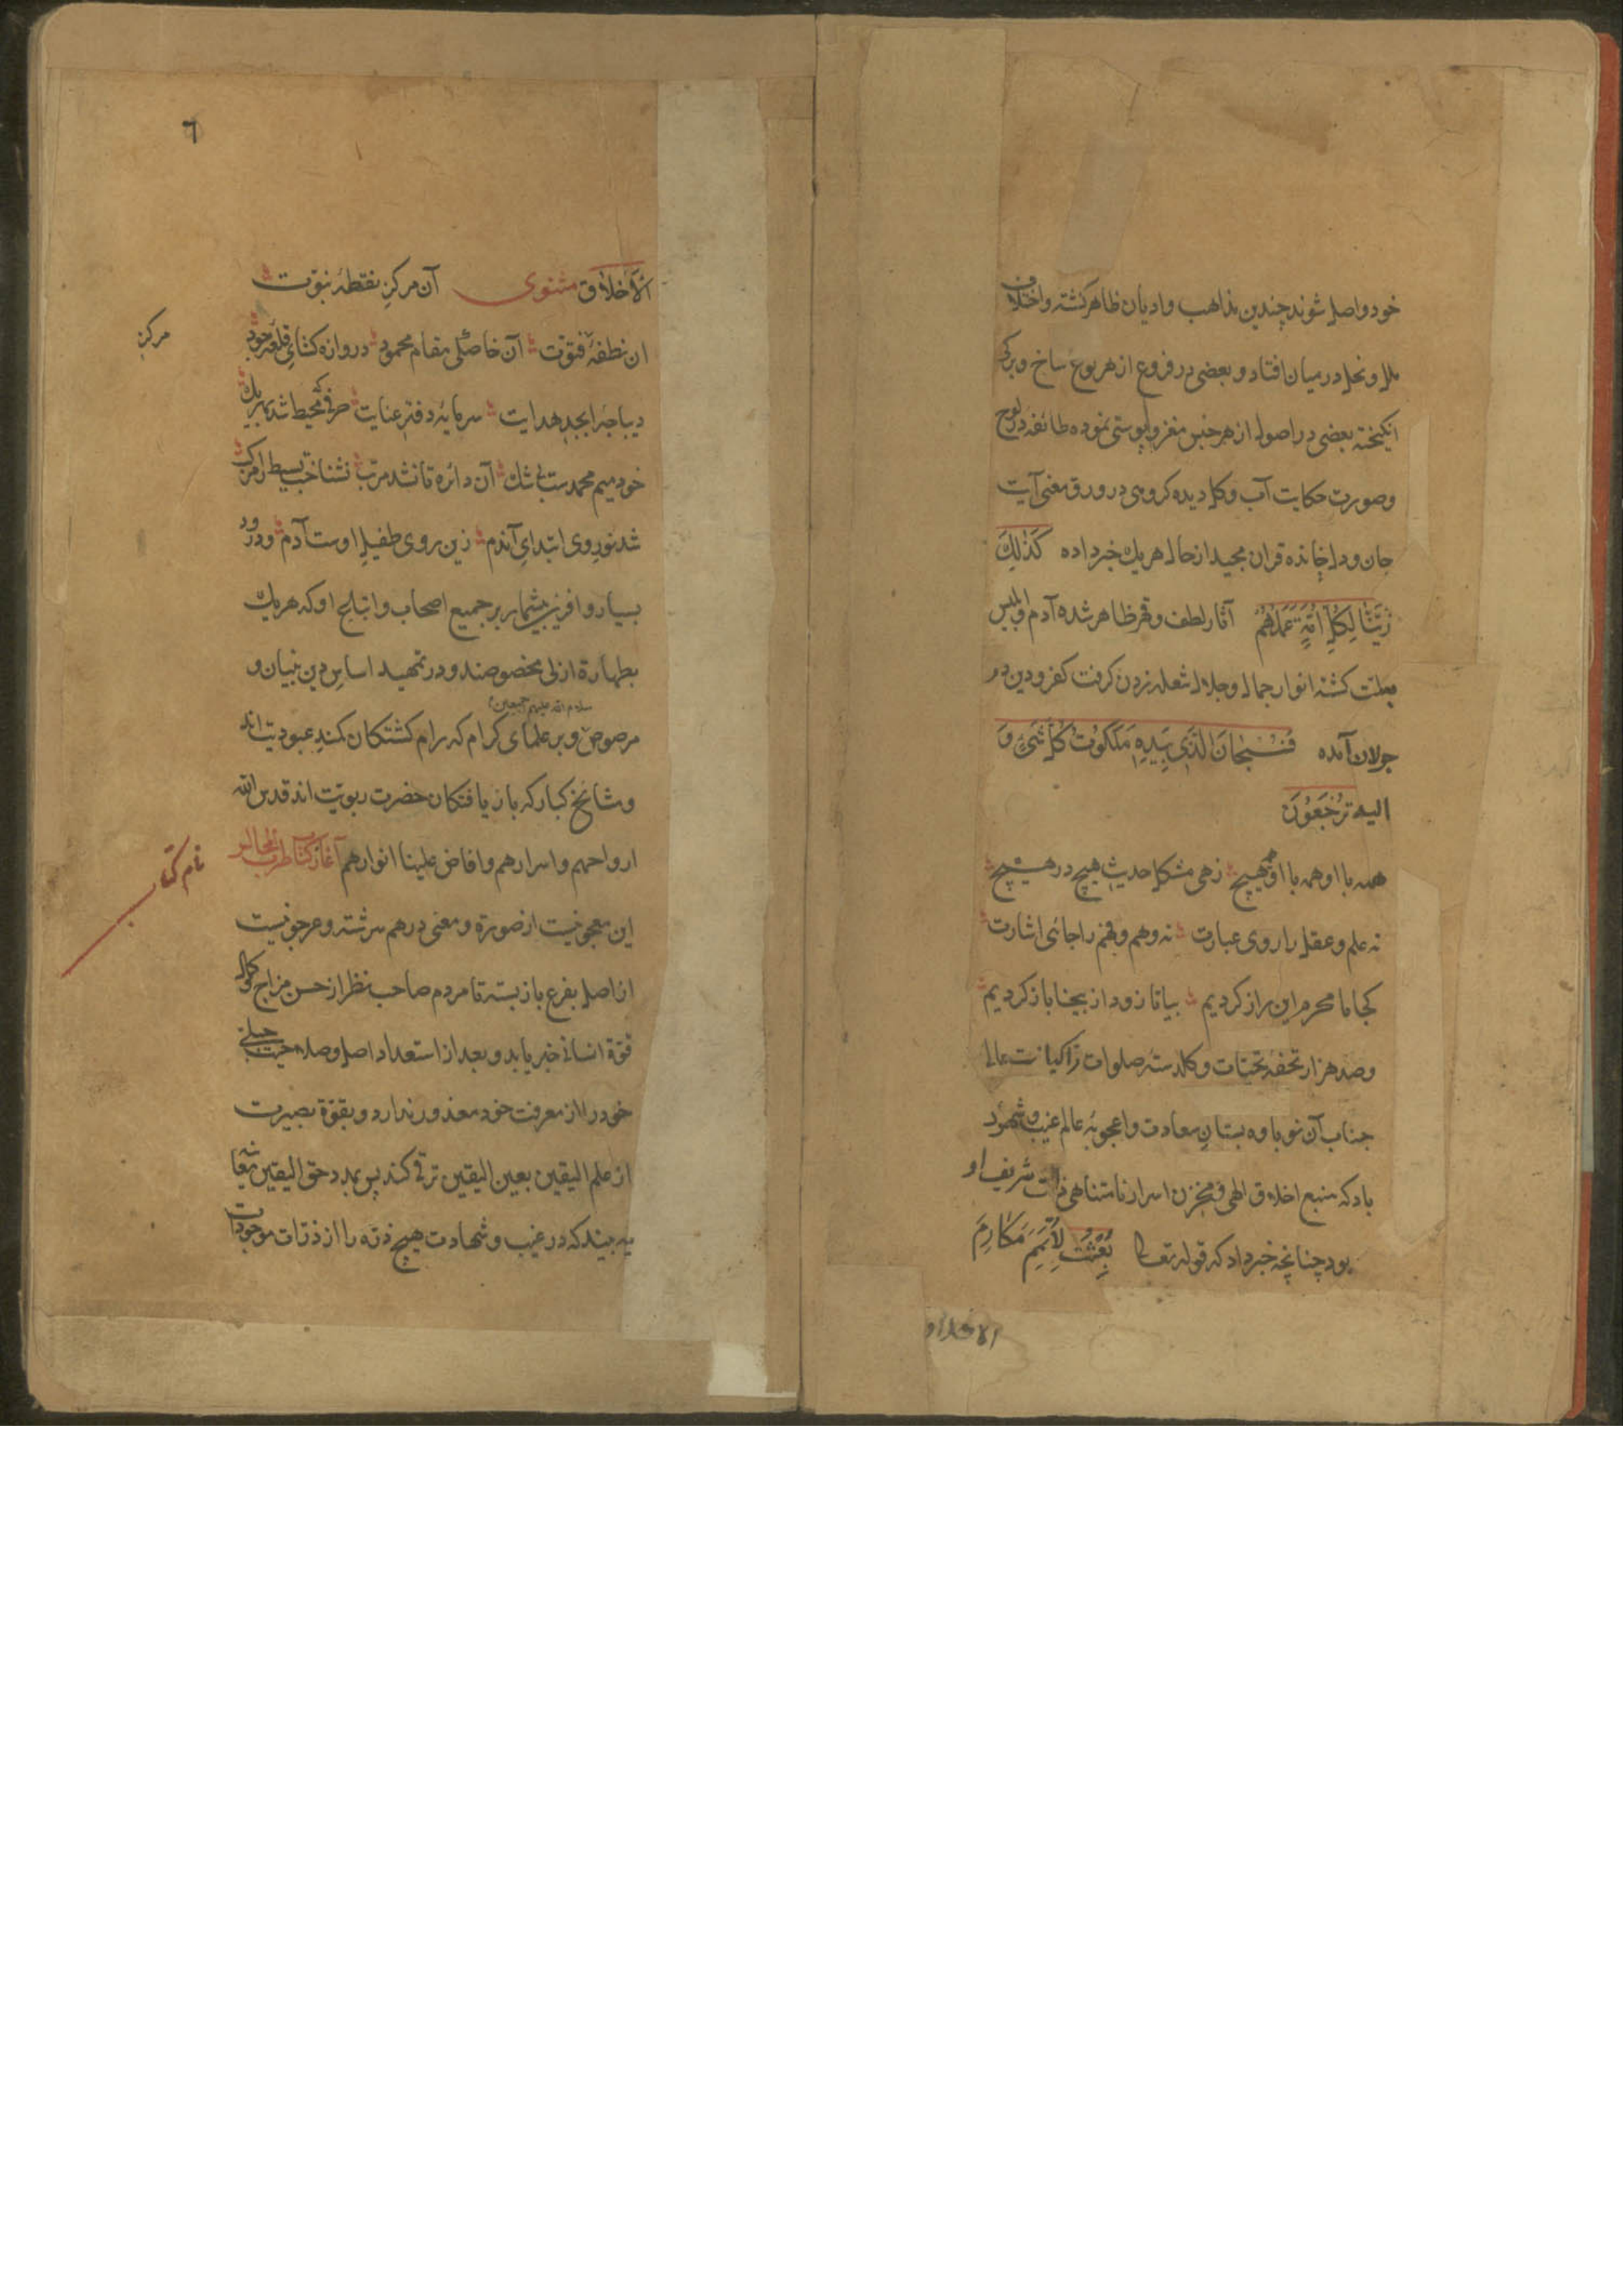 خود واصل شوند چندین مذاهب و ادیان ظاهر گشته و اختلاف
ملل و نحل در میان افتاد و بعضی در فروع از هر نوع شاخ و برکی
انکیخته بعضی در اصول از هر جنس مغز و پوستی نموده طائفه در لوح
و صورت حکایت آب و کل دیده کروهی در ورق معنی آیت
جان و دل خوانده قران مجید از حال هر یک خبر داده كَذٰلِكَ
زَيَّنَّا لِكُلِّ اُمَّةٍ عَمَلَهُمْ آثار لطف و قهر ظاهر شده آدم و ابلیس
بعلت کشته انوار جمال و جلال شعله زدن کرفت کفر و دین در
جولان آمده فَسُبْحَانَ الَّذِي بِيَدِهِ مَلَكُوْتُ كُلِّ شَيْءٍ وَ
الیه تُرْجَعُوْنَ
همه با او همه با او هیچ زهی مشکل حدیث هیچ در هیچ
نه علم و عقل را روی عبارت نه وهم و فهم را جائی اشارت
کجا ما محرم این راز کردیم بیا تا زود از بیجا باز کردیم
و صد هزار تحفه تحیات و کلدسته صلوات زاکیات عالی
جناب آن نوباوه بستان سعادت و اعجوبه عالم غیب و شهود
باد که منبع اخلاق الهی و مخزن اسرار نامتناهی ذات شریف او
بود چنانچه خبر داد که قوله تعالی بُعِثْتُ لِاُتَمِّمَ مَكَارِمَ
الاخلاق
٦
الْاَخْلَاق مثنوی آن مرکز نقطهٔ نبوّت
مرکز
ان نطفهٔ فتوّت آن خاصکی مقام محمود دروازه کشای قلعه جود
دیباجهٔ ابجد هدایت سرمایهٔ دفتر عنایت حرفی که محیط شد بهر یک
خود میم محمدست بی شک آن دائره تا نشد مرتب نشناخت بسیط را مرکب
شد نور وی ابتدای آندم زین روی طفیل اوست آدم و درود
بسیار و افرین بیشمار بر جمیع اصحاب و اتباع او که هر یک
بطهارة ازلی مخصوصند و در تمهید اساس دین بنیان و
سلام الله علیهم اجمعین
مرصوص و بر علمای کرام که رام کشتکان کمند عبودیت اند
و مشایخ کبار که باز یافتکان حضرت ربوبیت اند قدس الله
ارواحهم و اسرارهم و افاض علینا انوارهم آغاز کتاب طرب المجالس
نام کتاب
این معجونیست از صورة و معنی در هم سرشته و عرجونیست
از اصل بفرع باز بسته تا مردم صاحب نظر از حسن مزاج کمال
قوّة انسانی خبر یابد و بعد از استعداد اصل وصله جبلی
خود را از معرفت خود معذور ندارد و بقوّة بصیرت
از علم الیقین بعین الیقین ترقی کند پس بمدد حق الیقین
به بیند که در غیب و شهادت هیچ ذرّه را از ذرّات موجودات